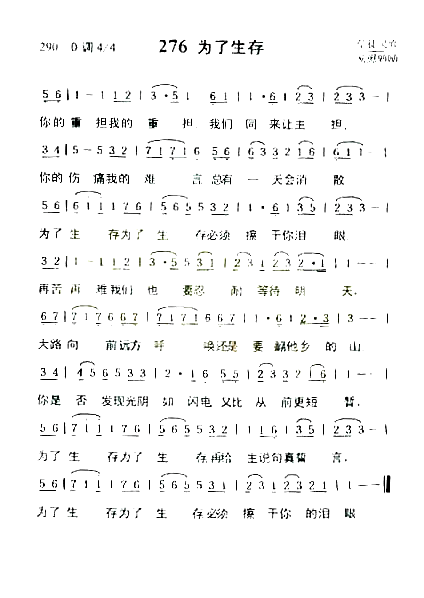 290 D调 4/4 276 为了生存
5 6 | 1 - 1 1 2 | 3 · 5 | 6 1 | 1 · 6 1 2 3 | 2 3 3 - |
你的重 担我的 重 担, 我们 同 来让主 担,
3 4 | 5 - 5 3 2 | 1 7 1 5 | 6 6 | 2 · 6 3 3 2 1 6 | 6 1 - |
你的伤 痛我的 难 言 总有 一 天会消 散
5 6 | 6 1 1 1 7 6 | 5 6 5 5 3 2 | 1 6 1 3 5 | 2 3 3 - |
为了生 存为了 生 存必须 擦 干你泪 眼
3 2 | 1 - 1 1 2 | 3 · 5 5 3 1 | 2 3 1 2 3 2 · 1 | 1 - - |
再苦再 难我们 也 要忍 耐 等待 明 天.
6 7 | 1 7 6 7 | 7 1 7 1 6 6 7 | 1 - 6 1 2 3 | 3 - - |
大路向 前远方 呼 唤还是 要 翻他乡 的 山
3 4 | 4 5 6 5 3 3 | 2 3 2 1 6 | 2 · 1 6 5 5 | 5 - - |
你是 否 发现光阴 如 闪电 又比 从 前更短 暂.
5 6 | 7 1 1 2 1 | 5 6 5 5 3 2 | 1 1 6 3 5 | 2 3 - |
为了 生 存为了 生 存,再给 主说句真誓 言.
5 6 | 7 1 1 1 7 6 | 5 6 5 5 3 2 | 1 1 6 2 3 2 1 | 1 - - ‖
为了 生 存为了 生 存必须 擦 干你 的泪 眼